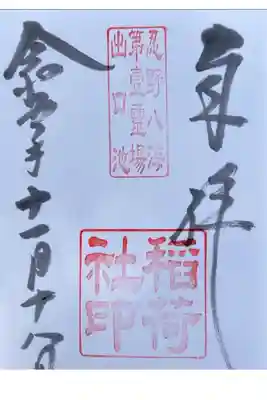 奉拝
忍野八海
第壹霊場
出口池
稲荷
社印
令和
十一月十八日